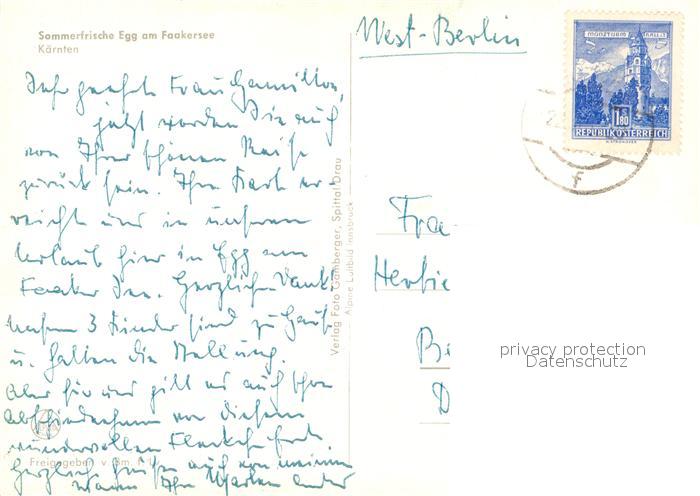 Sommerfrische Egg am Faakersee
Kärnten
West-Berlin
MÜNZTURM HALL i/T
1.80
REPUBLIK ÖSTERREICH
Sehr geehrte Frau Hamilton,
jetzt werden Sie auch
von Ihrer schönen Reise
zurück sein. Ihre Karte er-
reichte uns in unserem
Urlaub hier in Egg am
Faaker See. Herzlichen Dank!
Unsere 3 Kinder sind zu Haus
u. halten die Stellung.
Aber für uns gilt es auch schon
Abschiednehmen von diesem
wundervollen Fleckchen Erde
Herzliche Grüße auch von meinem
Mann Ihre
Freigegeben v.
Verlag Foto Gamberger, Spittal/Drau
Alpine Luftbild Innsbruck
Fra
Herbie
Be
D
f
privacy protection
Datenschutz